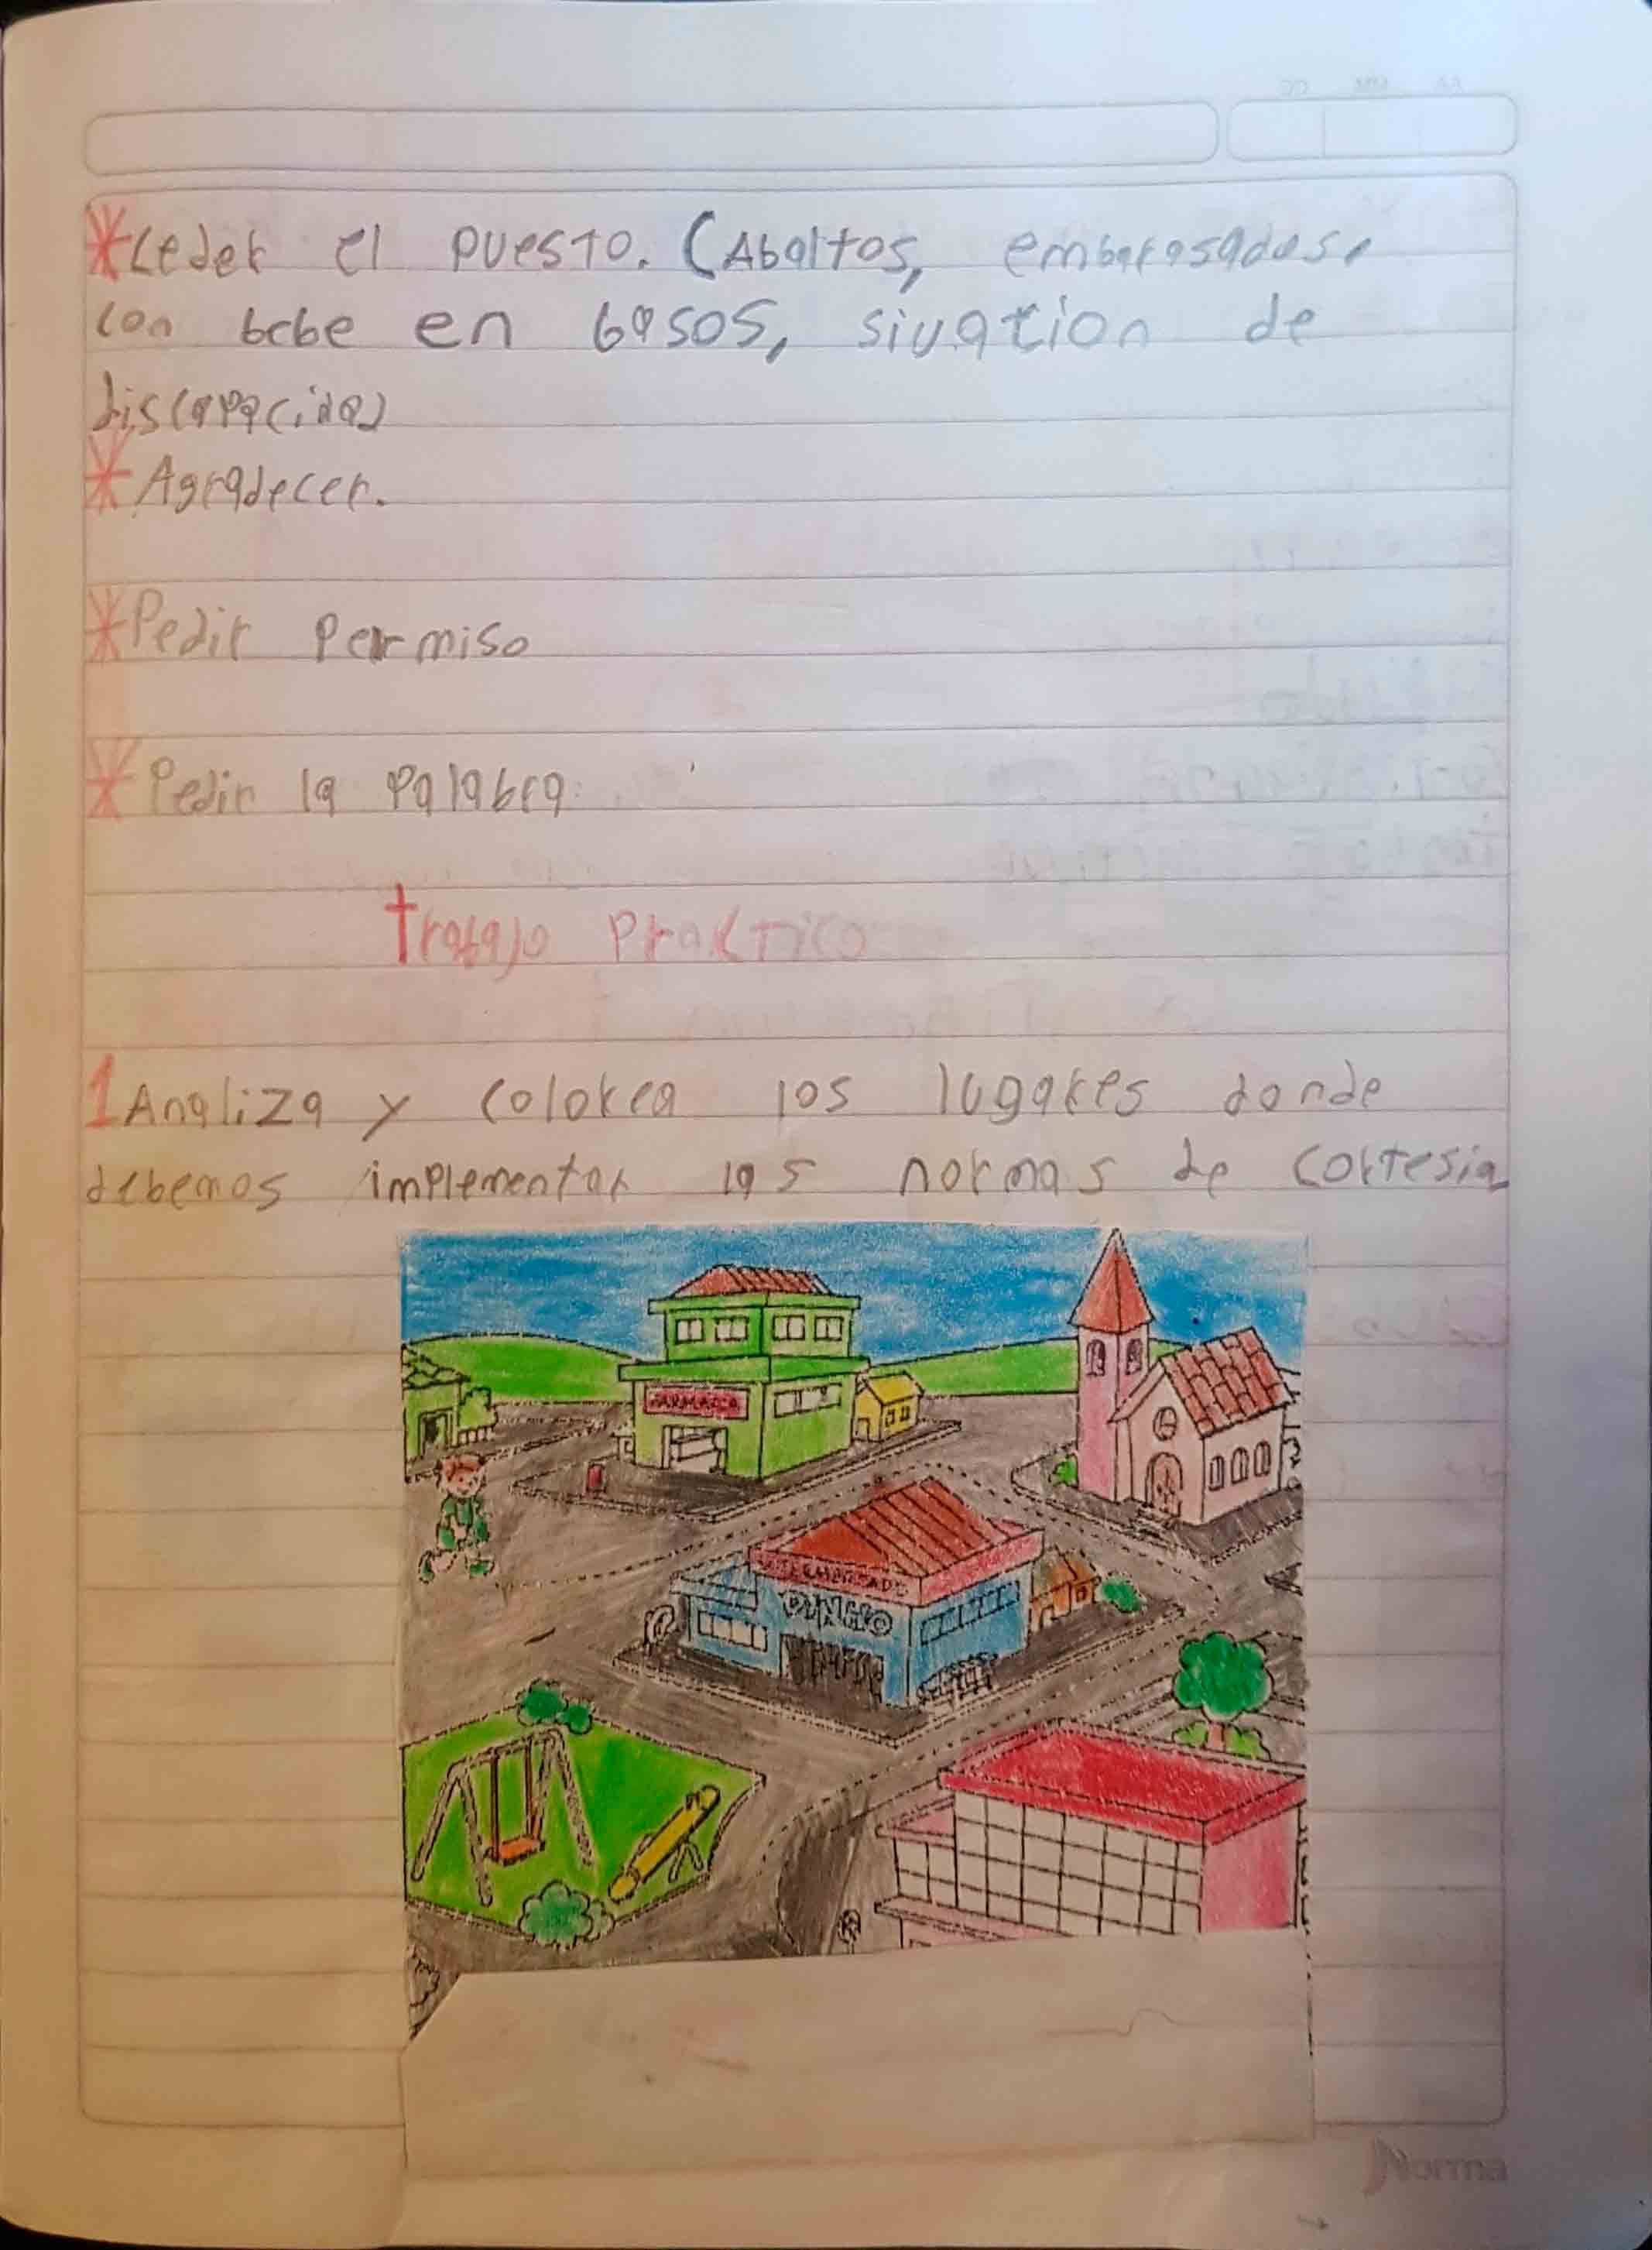 *Ceder el puesto. (Abaltos, embarasadas,
con bebe en basos, siuation de
discapacida)
*Agradecer.
*Pedir permiso
*Pedir la palabra.
trabajo praktico
1 Analiza y colorea los lugares donde
debemos implementar las normas de cortesia
FARMACIA
SUPERMERCADO
Norma